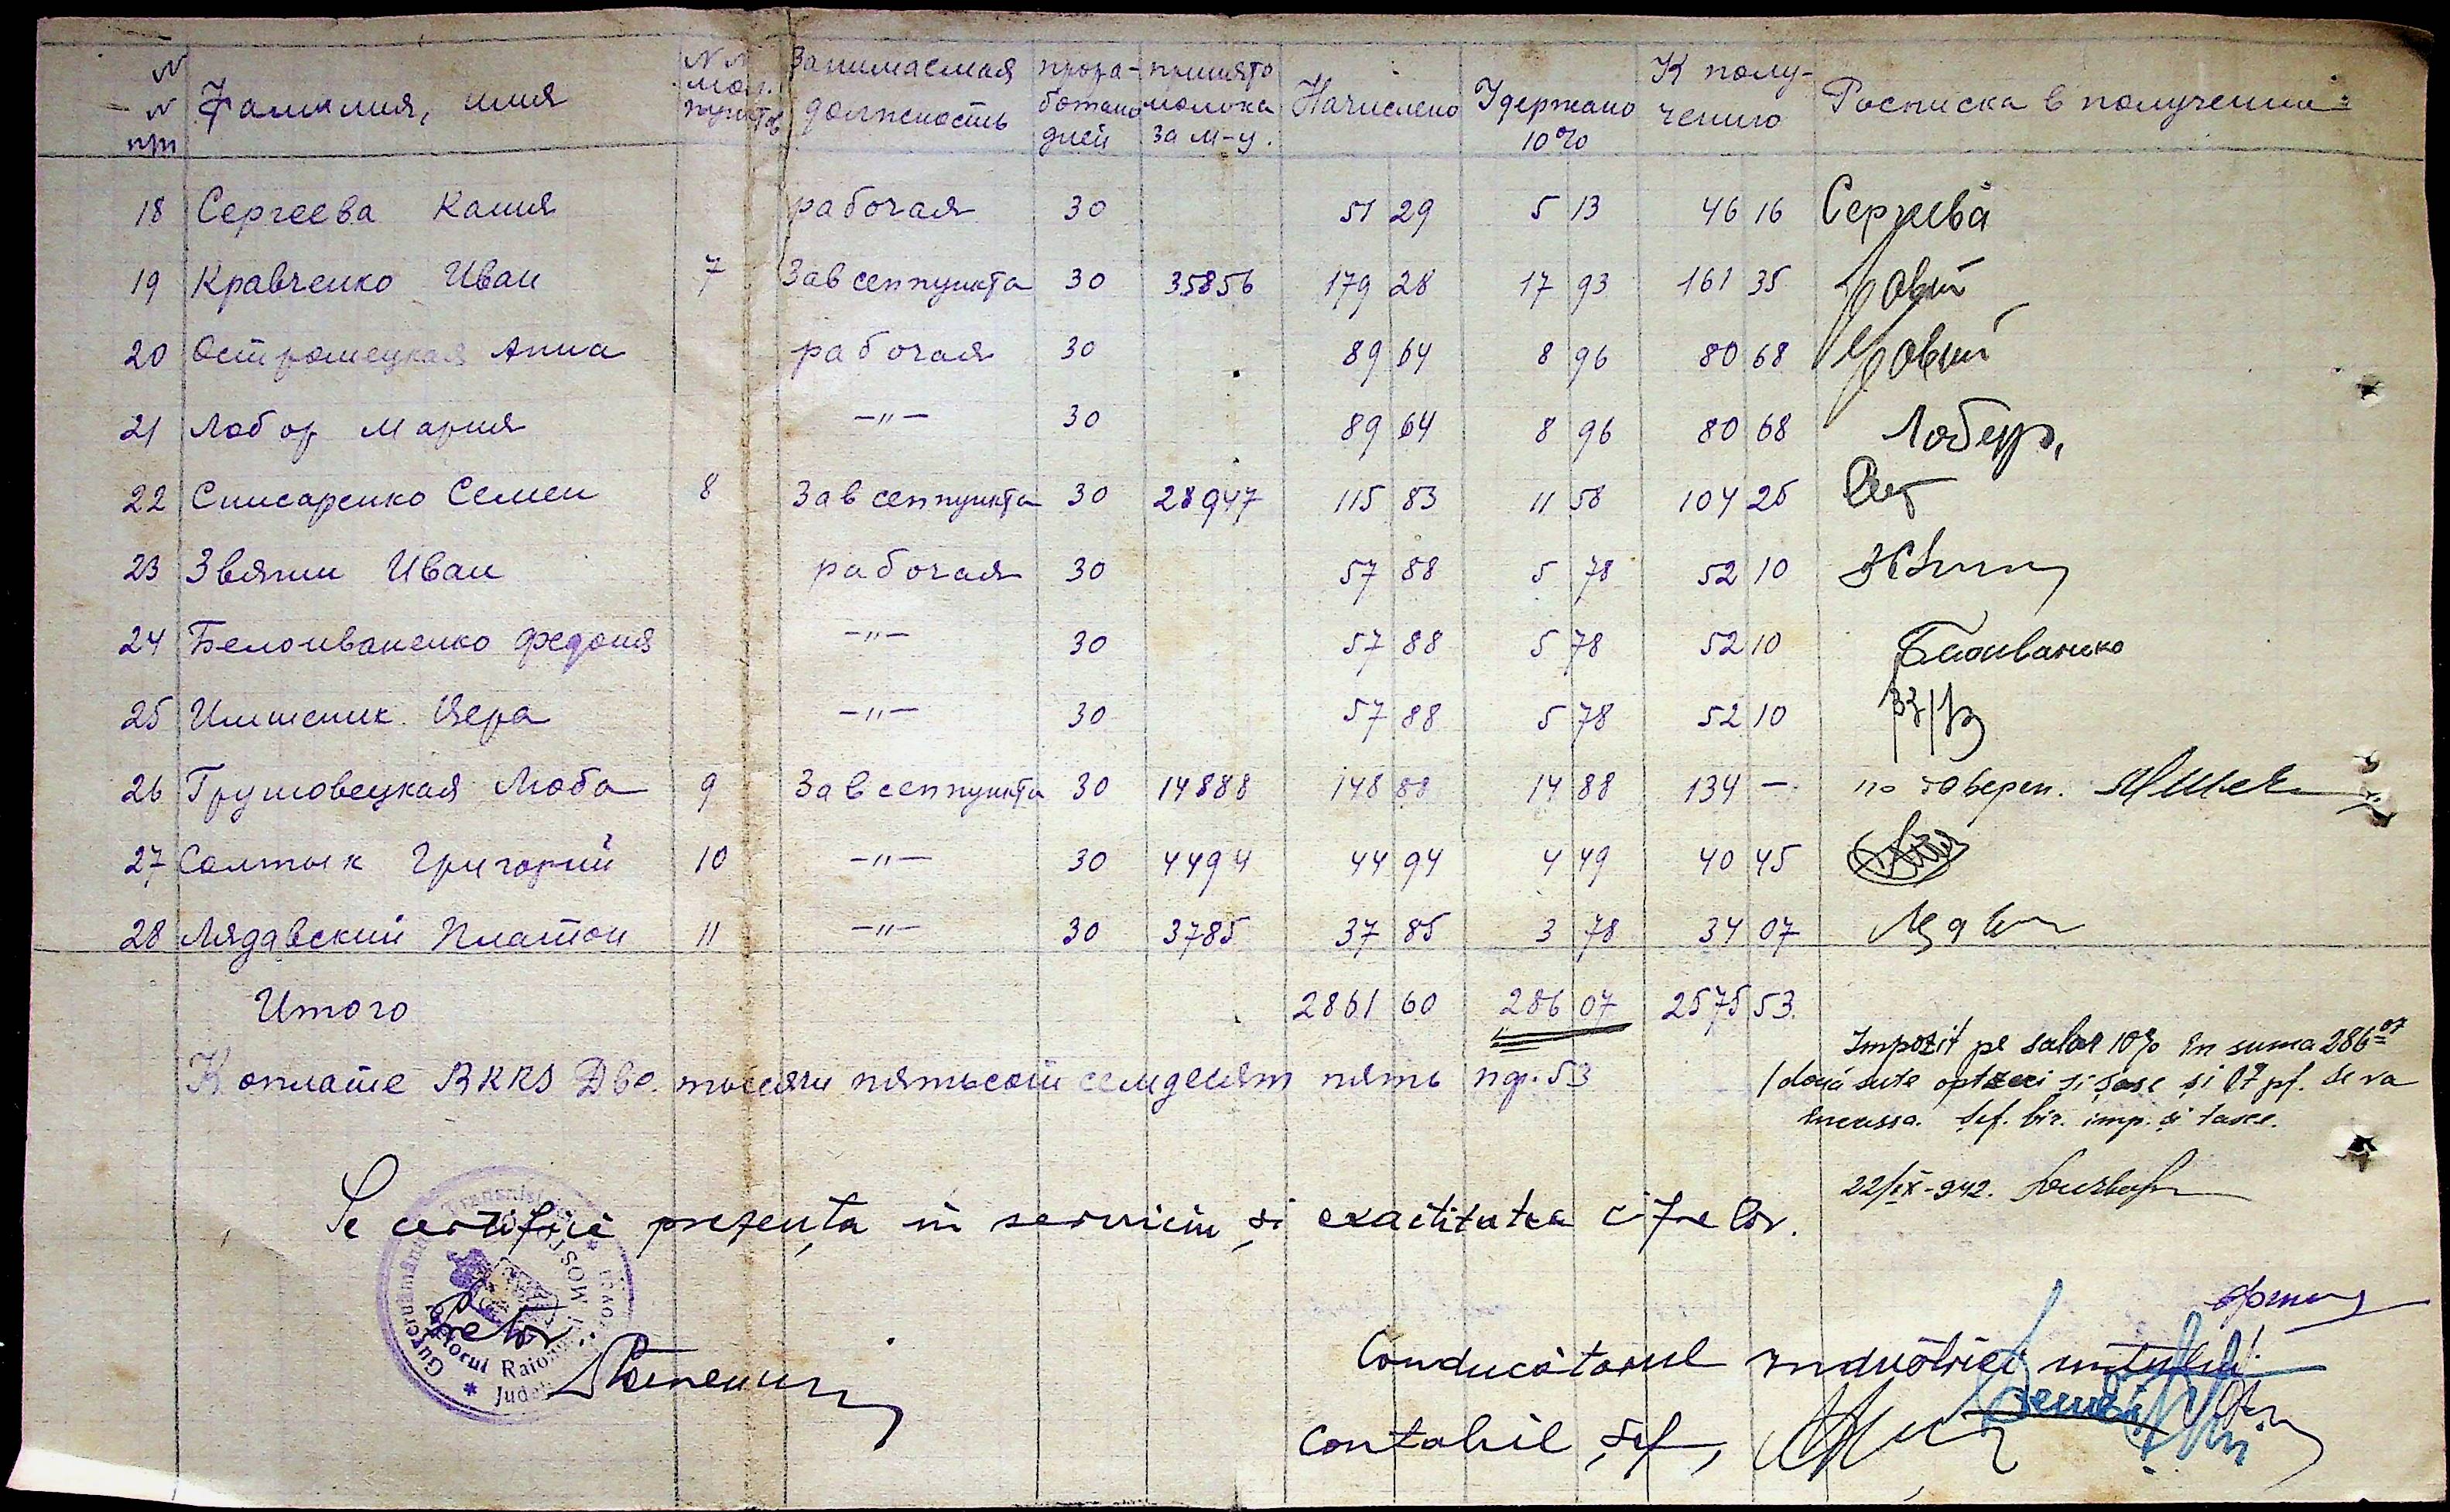 N N пп Фамилия, имя N N мол. пунктов Занимаемая должность прора-ботано дней принято молока за м-ц. Начислено Удержано 10% К полу-чению Росписка в получении
18 Сергеева Кания рабочая 30 51 29 5 13 46 16 Сергеева
19 Кравченко Иван 7 Зав сеппункта 30 35856 179 28 17 93 161 35
20 Остромецкая Анна рабочая 30 89 64 8 96 80 68
21 Лобор Мария —"— 30 89 64 8 96 80 68 Лобер,
22 Списаренко Семен 8 Зав сеппункта 30 28947 115 83 11 58 104 25
23 Звягин Иван рабочая 30 57 88 5 78 52 10
24 Белоиваненко Федония —"— 30 57 88 5 78 52 10
25 Вера —"— 30 57 88 5 78 52 10
26 Грушовецкая Люба 9 Зав сеппункта 30 14888 148 88 14 88 134 — по доверен.
27 Солтык Григорий 10 —"— 30 4494 44 94 4 49 40 45
28 Лядавский Платон 11 —"— 30 3785 37 85 3 78 34 07
Итого 2861 60 286 07 2575 53.
К оплате RKKS Две тысячи пятьсот семдесят пять пф. 53
Impozit pe salar 10% în suma 286 07
/două sute optzeci si șase și 07 pf. se va
încassa. Șef. bir. imp. și taxe.
22/IX-942.
Se certifică prezența în serviciu și exactitatea cifrelor.
Guvernământul Transnistriei
Pretor
Conducătorul industriei
Contabil șef,